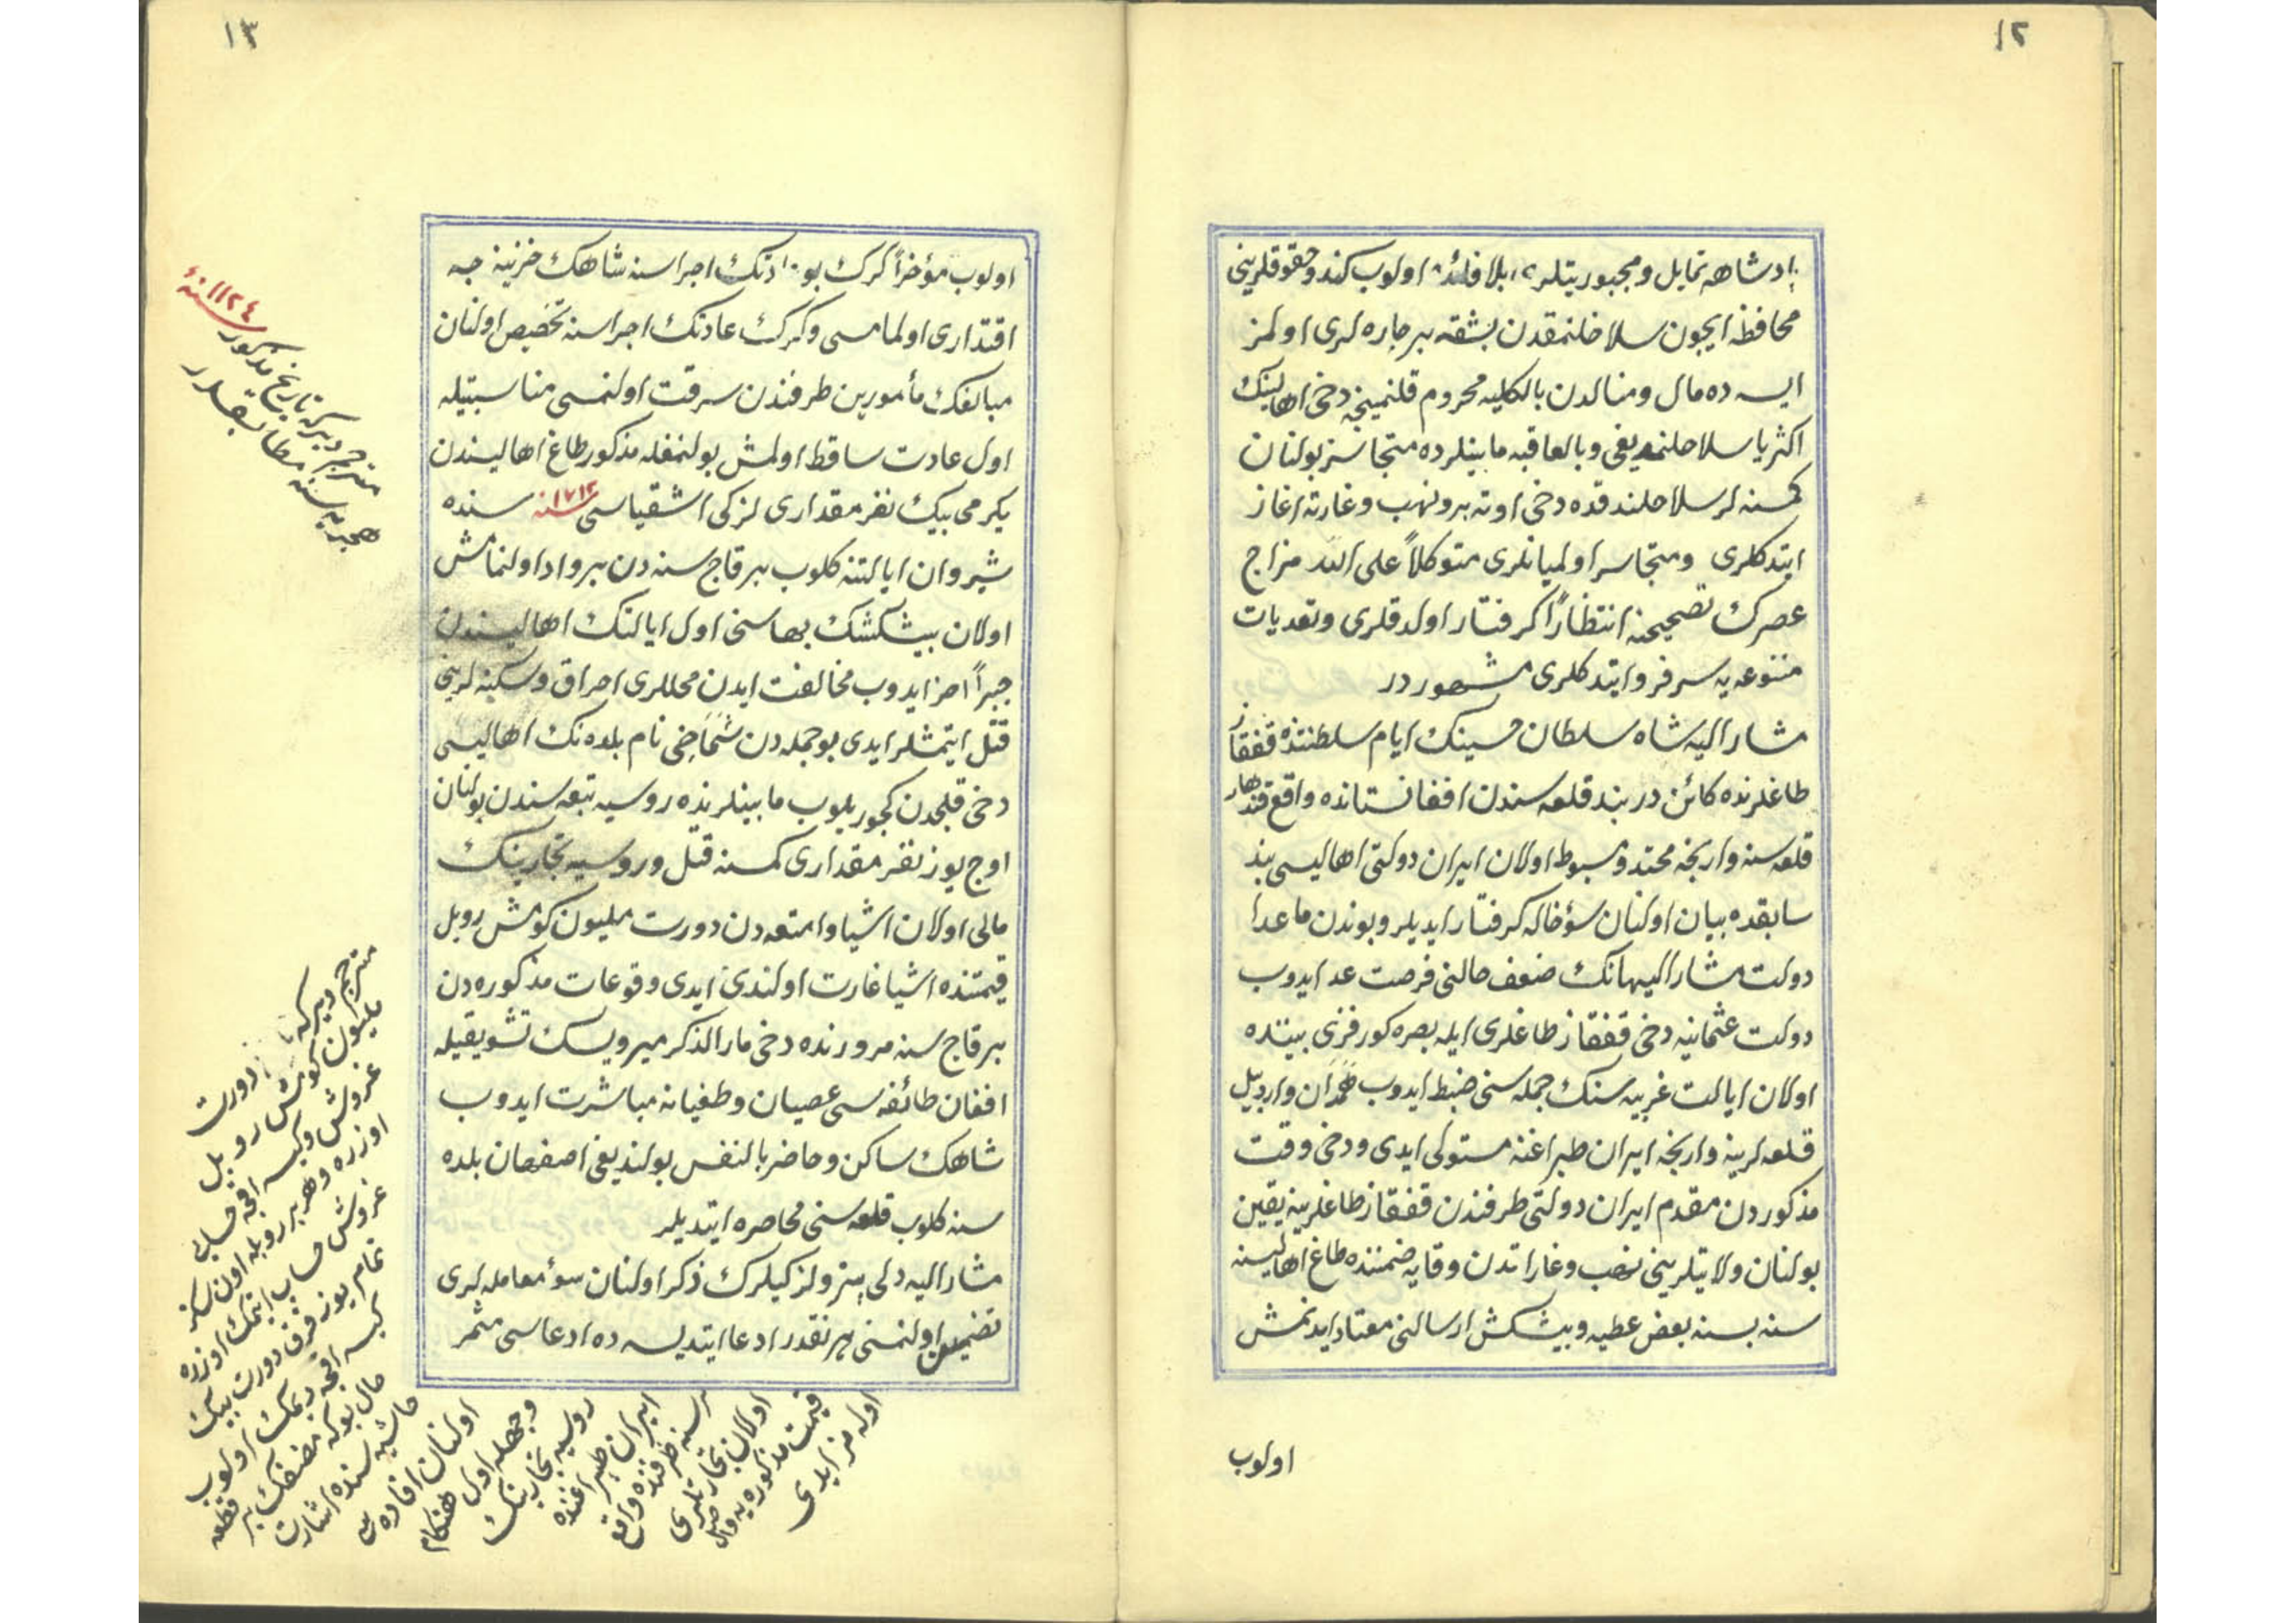 ١٢
پادشاهه تمایل و مجبوریتلری بلا فائده اولوب کندو حقوقلرینی
محافظه ایچون سلاحلنمقدن بشقه بر چاره لری اولمز
ایسه ده مال و منالدن بالکلیه محروم قلنمینجه دخی اهالینك
اکثریا سلاحلنمدیغی و بالعاقبه مابینلرده متجاسر بولنان
کمسنه لر سلاحلندقده دخی اوته برو نهب و غارته اغاز
ایتدکلری و متجاسر اولمیانلری متوکلاً علی الله مزاج
عصرك تصحیحنه انتظاراً کرفتار اولدقلری و تعدیات
متنوعه یه سرفرو ایتدکلری مشهور در
مشار الیه شاه سلطان حسینك ایام سلطنتنده قفقاز
طاغلرنده کائن دربند قلعه سندن افغانستانده واقع قندهار
قلعه سنه وارنجه ممتد و مبسوط اولان ایران دولتی اهالیسی بند
سابقده بیان اولنان سؤ حاله کرفتار ایدیلر و بوندن ماعدا
دولت مشار الیهانك ضعف حالنی فرصت عد ایدوب
دولت عثمانیه دخی قفقاز طاغلری ایله بصره کورفزی بیننده
اولان ایالت غربیه سنك جمله سنی ضبط ایدوب همدان و اردبیل
قلعه لرینه وارنجه ایران طپراغنه مستولی ایدی و دخی وقت
مذکوردن مقدم ایران دولتی طرفندن قفقاز طاغلرینه یقین
بولنان ولایتلرینی نهب و غاراتدن وقایه ضمننده طاغ اهالیسنه
سنه بسنه بعض عطیه و پیشکش ارسالنی معتاد ایدنمش
اولوب
١٣
اولوب مؤخراً کرك بو عادتك اجراسنه شاهك خزینه جه
اقتداری اولمامسی و کرك عادتك اجراسنه تخصیص اولنان
مبالغك مأمورین طرفندن سرقت اولنمسی مناسبتیله
اول عادت ساقط اولمش بولنمغله مذکور طاغ اهالیسندن
یکرمی بیك نفر مقداری لزکی اشقیاسی سنه ١٧١٢ سنده
شیروان ایالتنه کلوب بر قاچ سنه دن برو ادا اولنمامش
اولان پیشکشك بهاسنی اول ایالتك اهالیسندن
جبراً اخذ ایدوب مخالفت ایدن محللری احراق و سکنه لرینی
قتل ایتمشلر ایدی بو جمله دن شماخی نام بلده نك اهالیسی
دخی قلیجدن کچوریلوب مابینلرنده روسیه تبعه سندن بولنان
اوچ یوز نفر مقداری کمسنه قتل و روسیه تجارینك
مالی اولان اشیا و امتعه دن دورت ملیون کومش روبل
قیمتنده اشیا غارت اولندی ایدی وقوعات مذکوره دن
بر قاچ سنه مرورنده دخی مار الذکر میرویسك تشویقیله
افغان طائفه سی عصیان و طغیانه مباشرت ایدوب
شاهك ساکن و حاضر بالنفس بولندیغی اصفهان بلده
سنه کلوب قلعه سنی محاصره ایتدیلر
مشار الیه دلی پترو لزکیلرك ذکر اولنان سوء معامله لری
تضمین اولنمسنی هر نقدر ادعا ایتدیسه ده ادعاسی مثمر
مترجم دیر که تاریخ مذکور سنه ١١٢٤
هجریه سنه مطابقدر
مترجم دیر که دورت
ملیون کومش روبل
غروش و کیسه اقچه حسابی
اوزره و هر بر روبله اون سکز
غروش حساب ایتمك اوزره
تمام یوز قرق دورت بیك
کیسه اقچه دیمك اولوب
حال بوکه مصنفك بر قطعه
حاشیه سنده اشارت
اولنان افاده سی
وجهله اول هنکام
روسیه تجارینك
ایران طپراغنده
سنه ظرفنده واقع
اولان تجارتلری
قیمت مذکوره یه واصل
اوله مز ایدی